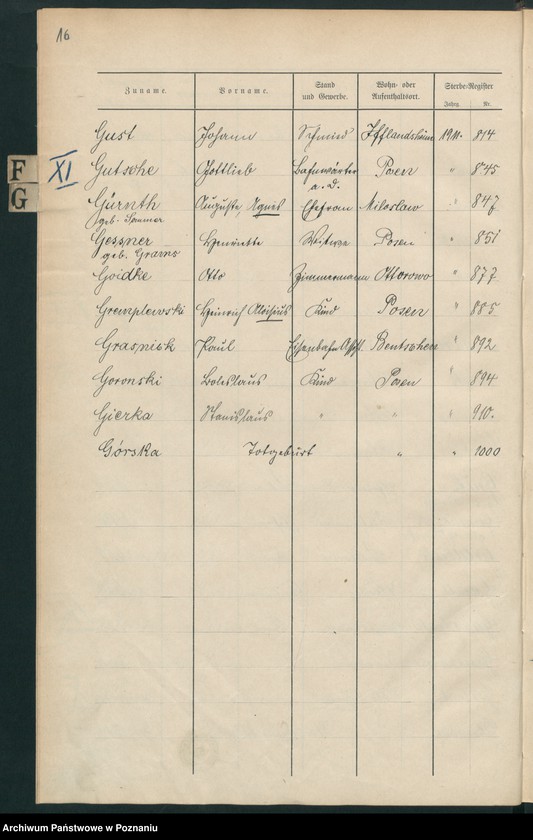 16
Zuname. Vorname. Stand und Gewerbe. Wohn- oder Aufenthaltsort. Sterbe-Register
Jahrg. Nr.
Gust Johann Schmied Ifflandsheim 1911. 814
F XI Gutsche Gottlieb Bahnwärter Posen " 845
a. D.
G Gürnth Auguste, Agnes Ehefrau Miloslaw " 847
geb. Sommer
Gessner Henriette Witwe Posen " 851
geb. Gramo
Goidke Otto Zimmermann Ottorowo " 877
Gremplewski Heinrich Aloisius Kind Posen " 885
Graspink Paul Eisenbahn Bentschen " 892
Goronski Boleslaus Kind Posen " 894
Gierka Stanislaus " " " 910.
Górska Totgeburt " " 1000
Archiwum Państwowe w Poznaniu